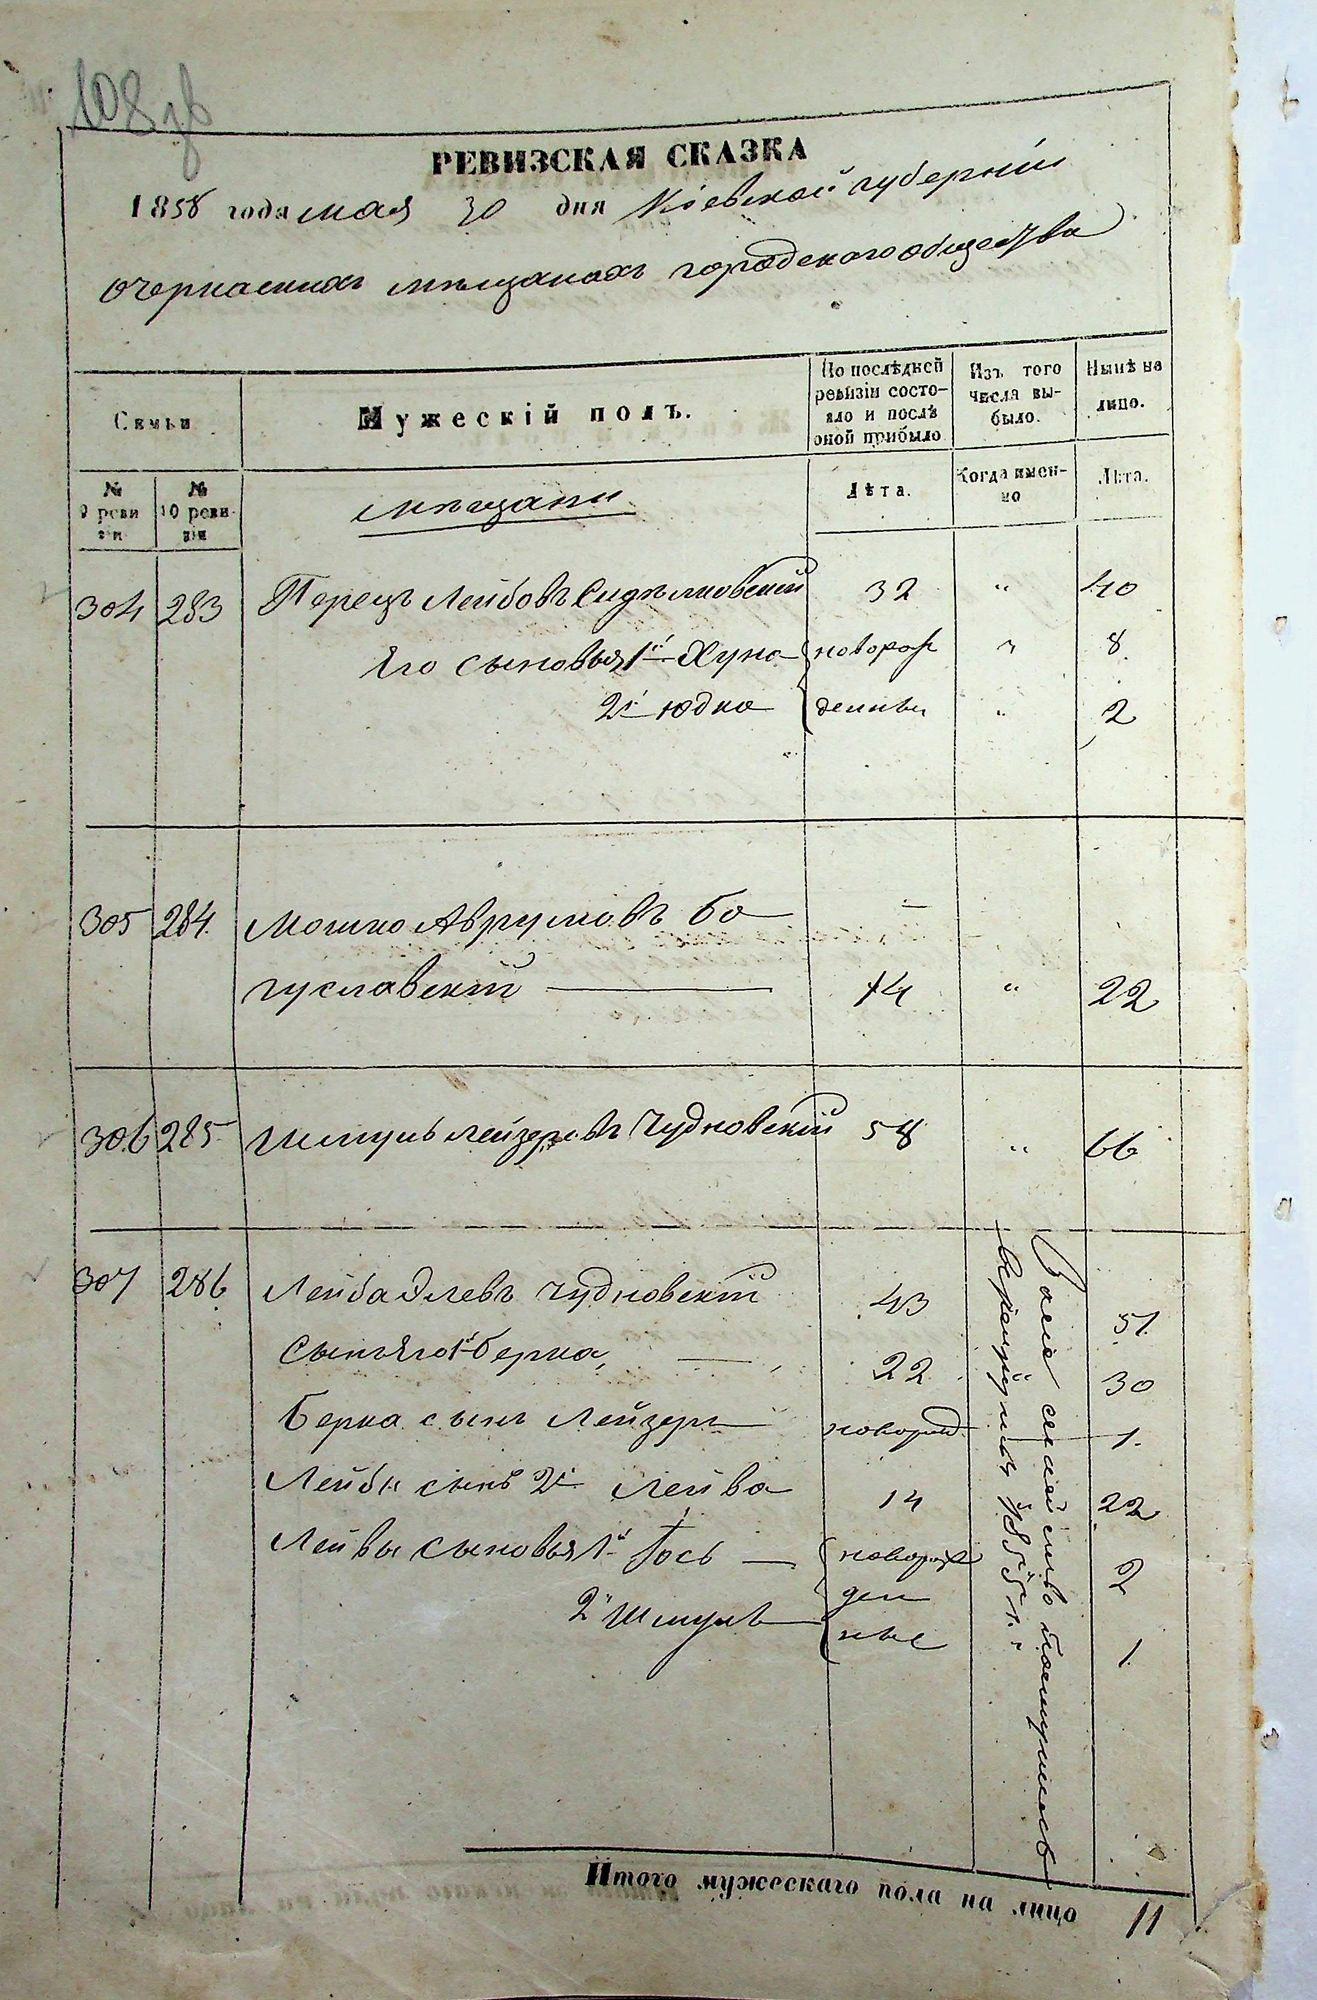 108 об
РЕВИЗСКАЯ СКАЗКА
1858 года мая 30 дня Кіевской губерніи
о черкаскихъ мѣщанахъ городского общества
Семьи
Мужескій полъ.
По послѣдней ревизіи состояло и послѣ оной прибыло
Изъ того числа выбыло.
Нынѣ на лицо.
№ 9 ревизіи
№ 10 ревизіи
мѣщани
Лѣта.
Когда именно
Лѣта.
304 283 Перецъ Лейбовъ 32 " 40
Его сыновья 1й Хуна новорож " 8
2й Юдка денные " 2
305 284 Мошко Аврумовъ Бо
гуславскій 14 " 22
306 285 Шмуль Лейзеровъ Чудновскій 58 " 66
307 286 Лейба Элевъ Чудновскій 43 51
Сынъ его 1й Берка 22 30
Берка сынъ Лейзеръ новорожд 1
Лейбы сынъ 2й Лейва 14 22
Лейвы сыновья 1й Іось новорож 2
ден
2й Шмуль ные 1
семейство
1855 г.
Итого мужескаго пола на лицо 11